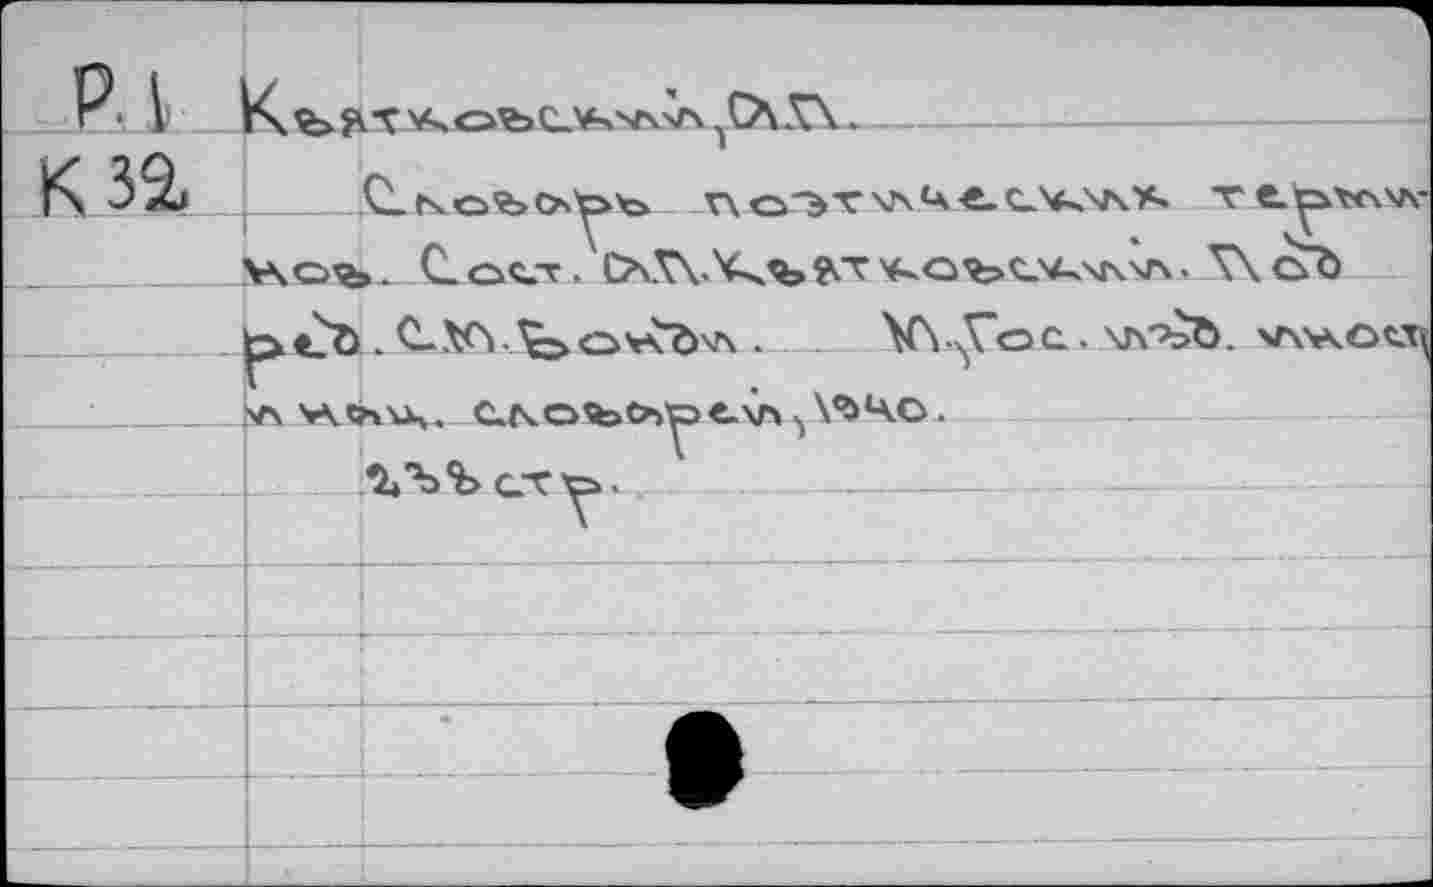 Р. 1 Квятковский, А.П.
К 32 Словарь поэтических терми-
нов. Сост. А.П. Квятковский. Под
ред. С.М. Бонди. М., Гос. изд. иност
и нац. словарей, 1940.
233 стр.